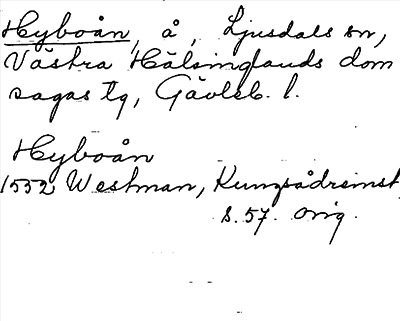 Hyboån, å, Ljusdals sn,
Västra Hälsinglands dom
sagas tg, Gävleb. l.
Hyboån
1552 Westman, Kungsådreinst
s. 57. orig.